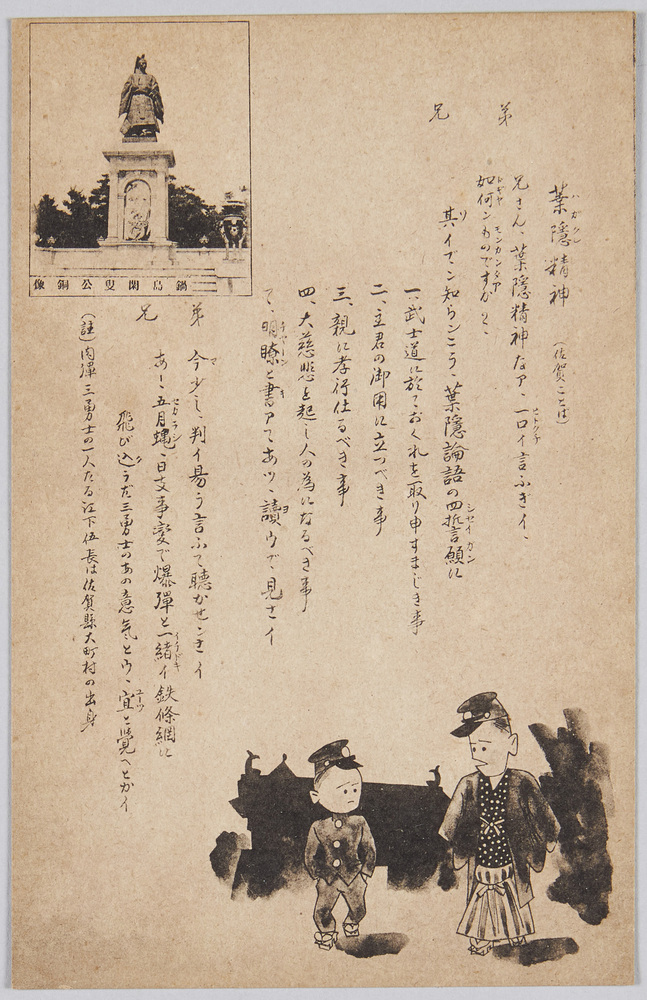 葉隠精神 (佐賀ことば)
弟 兄さん、葉隠精神なア、一口イ言ふぎイ、
如何ンものですかと、
兄 其イでン知らンこう、葉隠論語の四抵言願に
一、武士道に於ておくれを取り申すまじき事
二、主君の御用に立つべき事
三、親に孝行仕るべき事
四、大慈悲を起し人の為になるべき事
て、明瞭と書アてあツ、讀ウで、見さイ
弟 今少し、判イ易う言ふて聴かせんさイ
兄 あー、五月蝿、日支事変で爆彈と一緒イ鉄條網に
飛び込うだ三勇士のあの意気とウ、宜と覚へとかイ
(註)肉彈三勇士の一人たる江下伍長は佐賀縣大町村の出身
鍋島閑叟公銅像